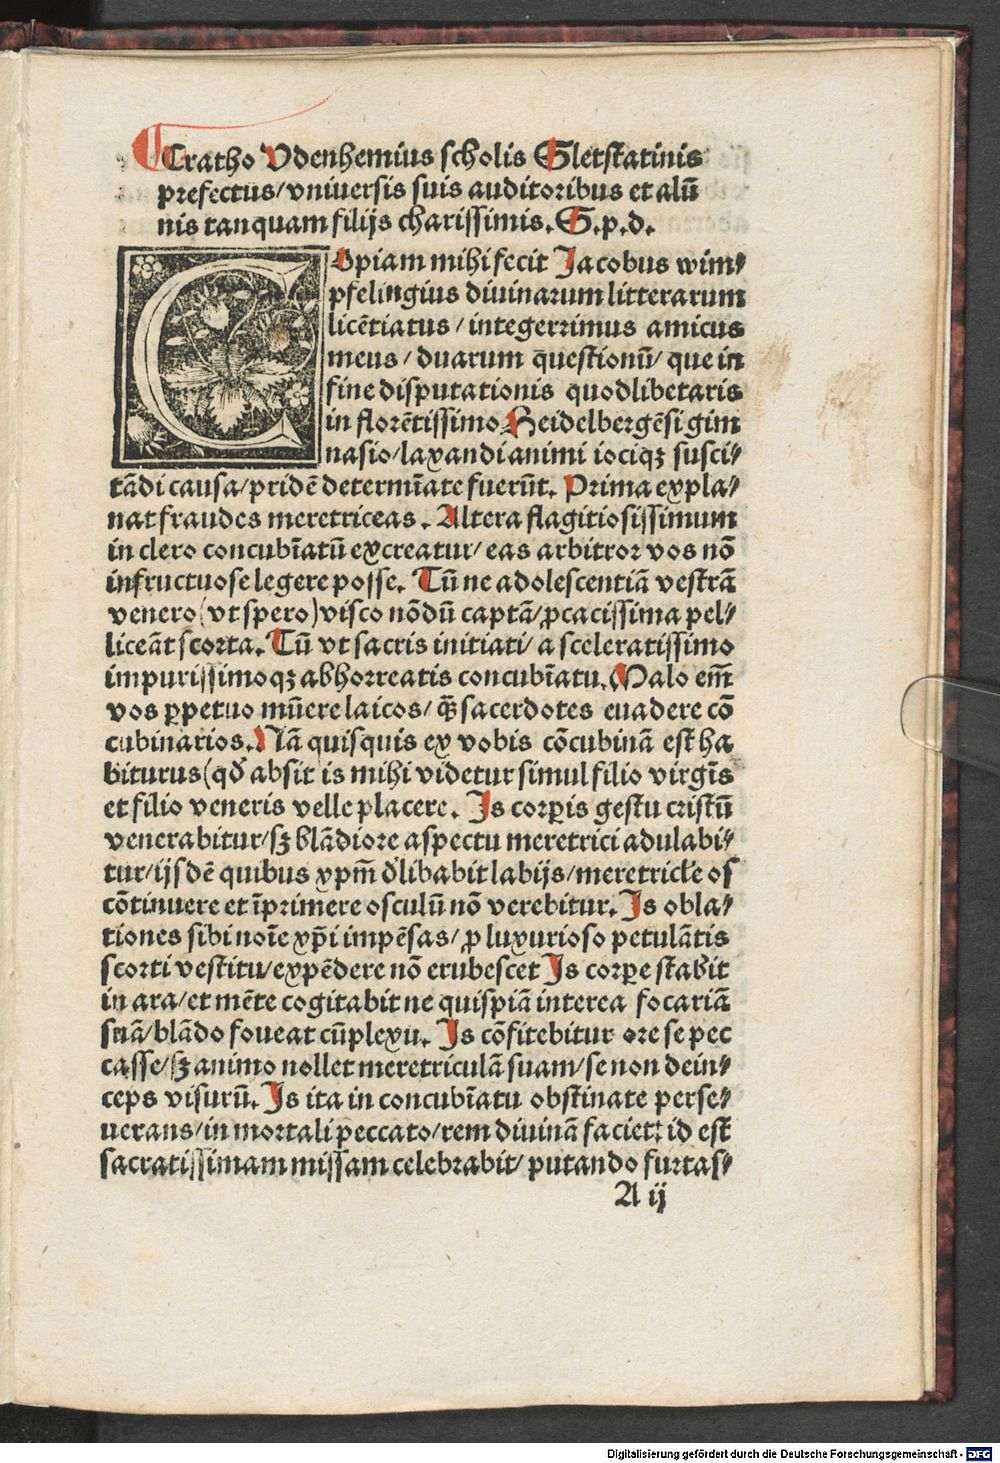 Cratho Vdenhemius scholis Sletstatinis
prefectus/vniuersis suis auditoribus et alū
nis tanquam filijs charissimis. S.p.d.
COpiam mihi fecit Jacobus wim⸗
pfelingius diuinarum litterarum
licētiatus/integerrimus amicus
meus/duarum questionū/que in
fine disputationis quodlibetaris
in florētissimo Heidelbergēsi gim
nasio/laxandi animi iociqꝫ susci⸗
tādi causa/pridē determīate fuerūt. Prima expla⸗
nat fraudes meretriceas. Altera flagitiosissimum
in clero concubīatū excreatur/eas arbitror vos nō
infructuose legere posse. Tū ne adolescentiā vestrā
venero(vt spero)visco nōdū captā/ꝓcacissima pel⸗
liceāt scorta. Tū vt sacris initiati/a sceleratissimo
impurissimoqꝫ abhorreatis concubīatu. Malo em̄
vos ꝑpetuo mūere laicos/q̄ꝫ sacerdotes euadere cō
cubinarios. Nā quisquis ex vobis cōcubinā est ha
biturus(qđ absit is mihi videtur simul filio virgīs
et filio veneris velle placere. Is corꝑis gestu cristū
venerabitur/sꝫ blādiore aspectu meretrici adulabi⸗
tur/ijsdē quibus xpm̄ đlibabit labijs/meretricĺe os
cōtinuere et īprimere osculū nō verebitur. Is obla⸗
tiones sibi noīe xp̄i impēsas/ꝓ luxurioso petulātis
scorti vestitu/expēdere nō erubescet Is corꝑe stabit
in ara/et mēte cogitabit ne quispiā interea focariā
suā/blādo foueat cūplexu. Is cōfitebitur ore se pec
casse/sꝫ animo nollet meretriculā suam/se non dein⸗
ceps visurū. Is ita in concubīatu obstinate perse⸗
uerans/in mortali peccato/rem diuinā faciet: id est
sacratissimam missam celebrabit/putando furtas⸗
A ij
Digitalisierung gefördert durch die Deutsche Forschungsgemeinschaft - DFG